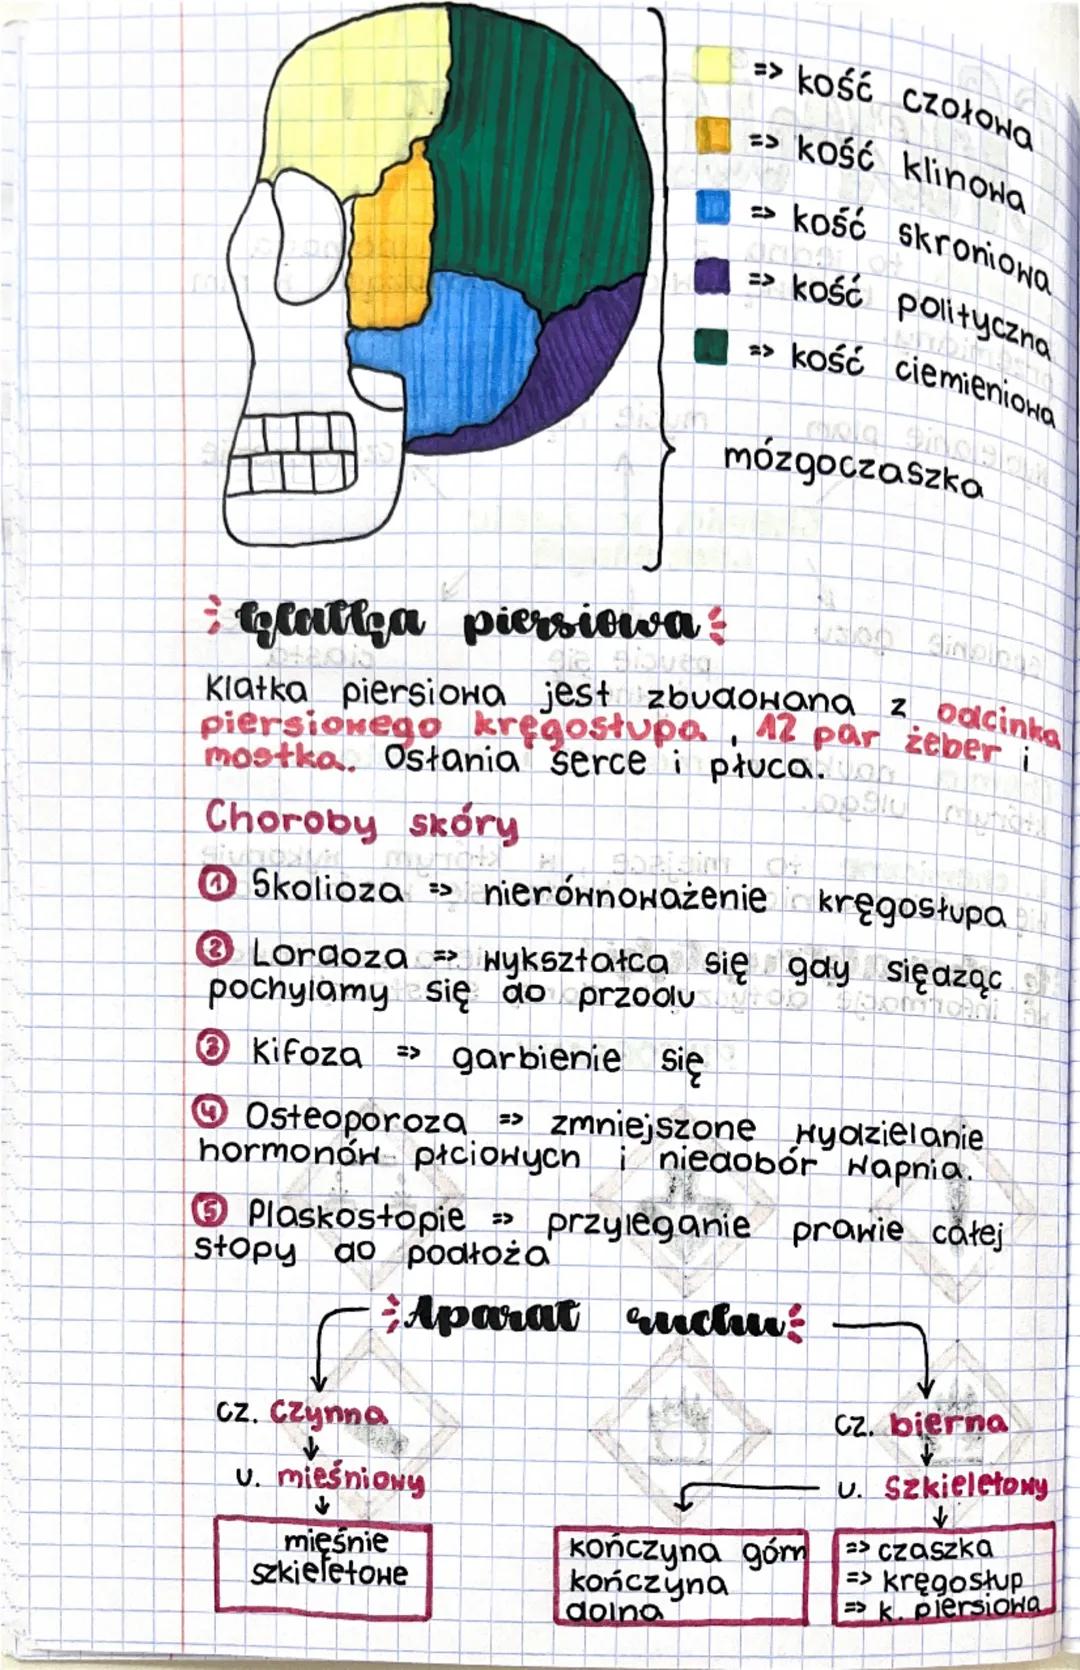 => kość czołowa
=> kość klinowa
=> kość skroniowa
=> kość polityczna
=> kość ciemieniowa
mózgoczaszka
Klatka piersiowa
Klatka piersiowa jest zbudowana z odcinka
piersiowego kręgosłupa, 12 par żeber i
mostka. Ostania serce i płuca.
Choroby skóry
1 Skolioza => nierównoważenie kręgosłupa
2 Lordoza => wykształca się gdy siędząc
pochylamy się do przodu
3 Kifoza => garbienie się
4 Osteoporoza => zmniejszone wydzielanie
hormonów płciowych i niedobór wapnia.
5 Płaskostopie => przyleganie prawie całej
stopy do podłoża
Aparat ruchu
cz. czynna
cz. bierna
u. mięśniowy
u. szkieletowy
mięśnie
szkieletowe
kończyna górn
kończyna
dolna
=> czaszka
=> kręgosłup
=> k. piersiowa